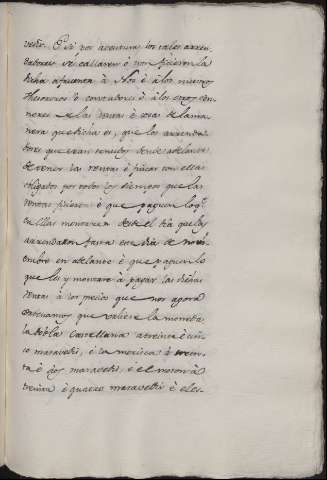 vedis. E si por aventura los tales arren-
dadores se callaren è non ficieren la
dicha afruenta à Nos è à los nuestros
Thesoreros è contadores è à los otros con-
neres de las rentas è cosas de la ma-
nera que dicha es, que los arrenda-
dores que eran tenudos desde adelante
de tener las rentas è fincar con ellas
obligados por todos los tiempos que las
rentas ficieren è que paguen lo q.e
en ellas montaren desde el dia que las
arrendaron fasta este dia de novi-
embre en adelante è que paguen lo
que les y montare à pagar las dichas
rentas à los precios que nos agora
ordenamos que valiere la moneda
la dobla Castellana à treinta è cin-
co maravedis, è la morisca à trein-
ta è dos maravedis, è el noron à
treinta è quatro maravedis è el es-